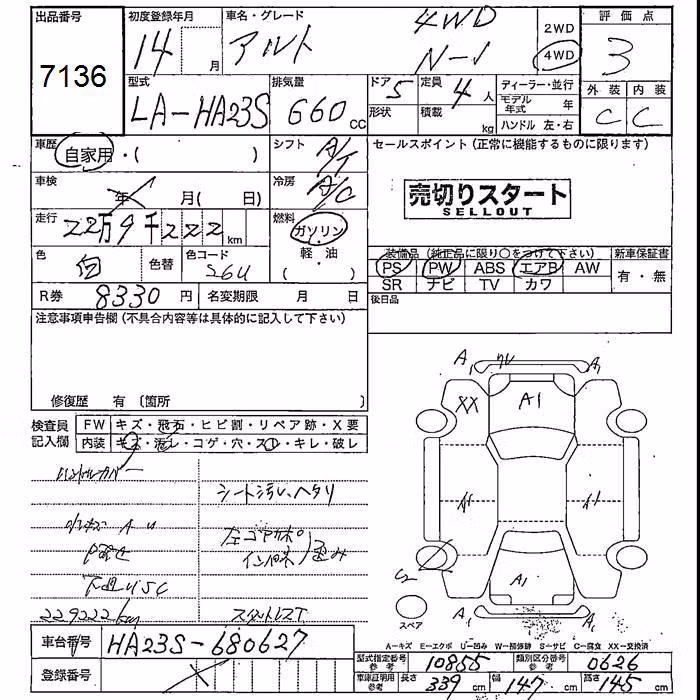 出品番号 初度登録年月 車名・グレード 評価点
7136 14 月 アルト 4WD N-1 2WD 4WD 3
型式 排気量 ドア 5 定員 4 人 ディーラー・並行 外装 内装
LA-HA23S 660 CC 形状 積載 kg モデル年式 年 C C
ハンドル 左・右
車歴 自家用・( ) シフト A/T セールスポイント (正常に機能するものに限ります)
車検 年 月( 日) 冷房 A/C 売切りスタート
SELLOUT
走行 22万9千222 km 燃料 ガソリン 軽・油 ( )
色 白 色替 色コード 26U 装備品 (純正品に限り○をつけて下さい) 新車保証書
PS PW ABS エアB AW 有・無
SR ナビ TV カワ
R券 8330 円 名変期限 月 日 後日品
注意事項申告欄 (不具合内容等は具体的に記入して下さい)
修復歴 有 〔箇所 〕
検査員記入欄 FW キズ・飛石・ヒビ割・リペア跡・X要
内装 キズ・汚レ・コゲ・穴・スレ・キレ・破レ
ハンドルカバー
シート汚レ、ヘタリ
A U
下廻りSC
229222km
A1 A1 XX A1 A1 A1 A1
スペア
A=キズ E=エクボ U=凹み W=補修跡 S=サビ C=腐食 XX=交換済
車台番号 HA23S-680627
登録番号
型式指定番号 参考 10855 類別区分番号 参考 0626
車庫証明用 参考 長さ 339 cm 幅 147 cm 高さ 145 cm